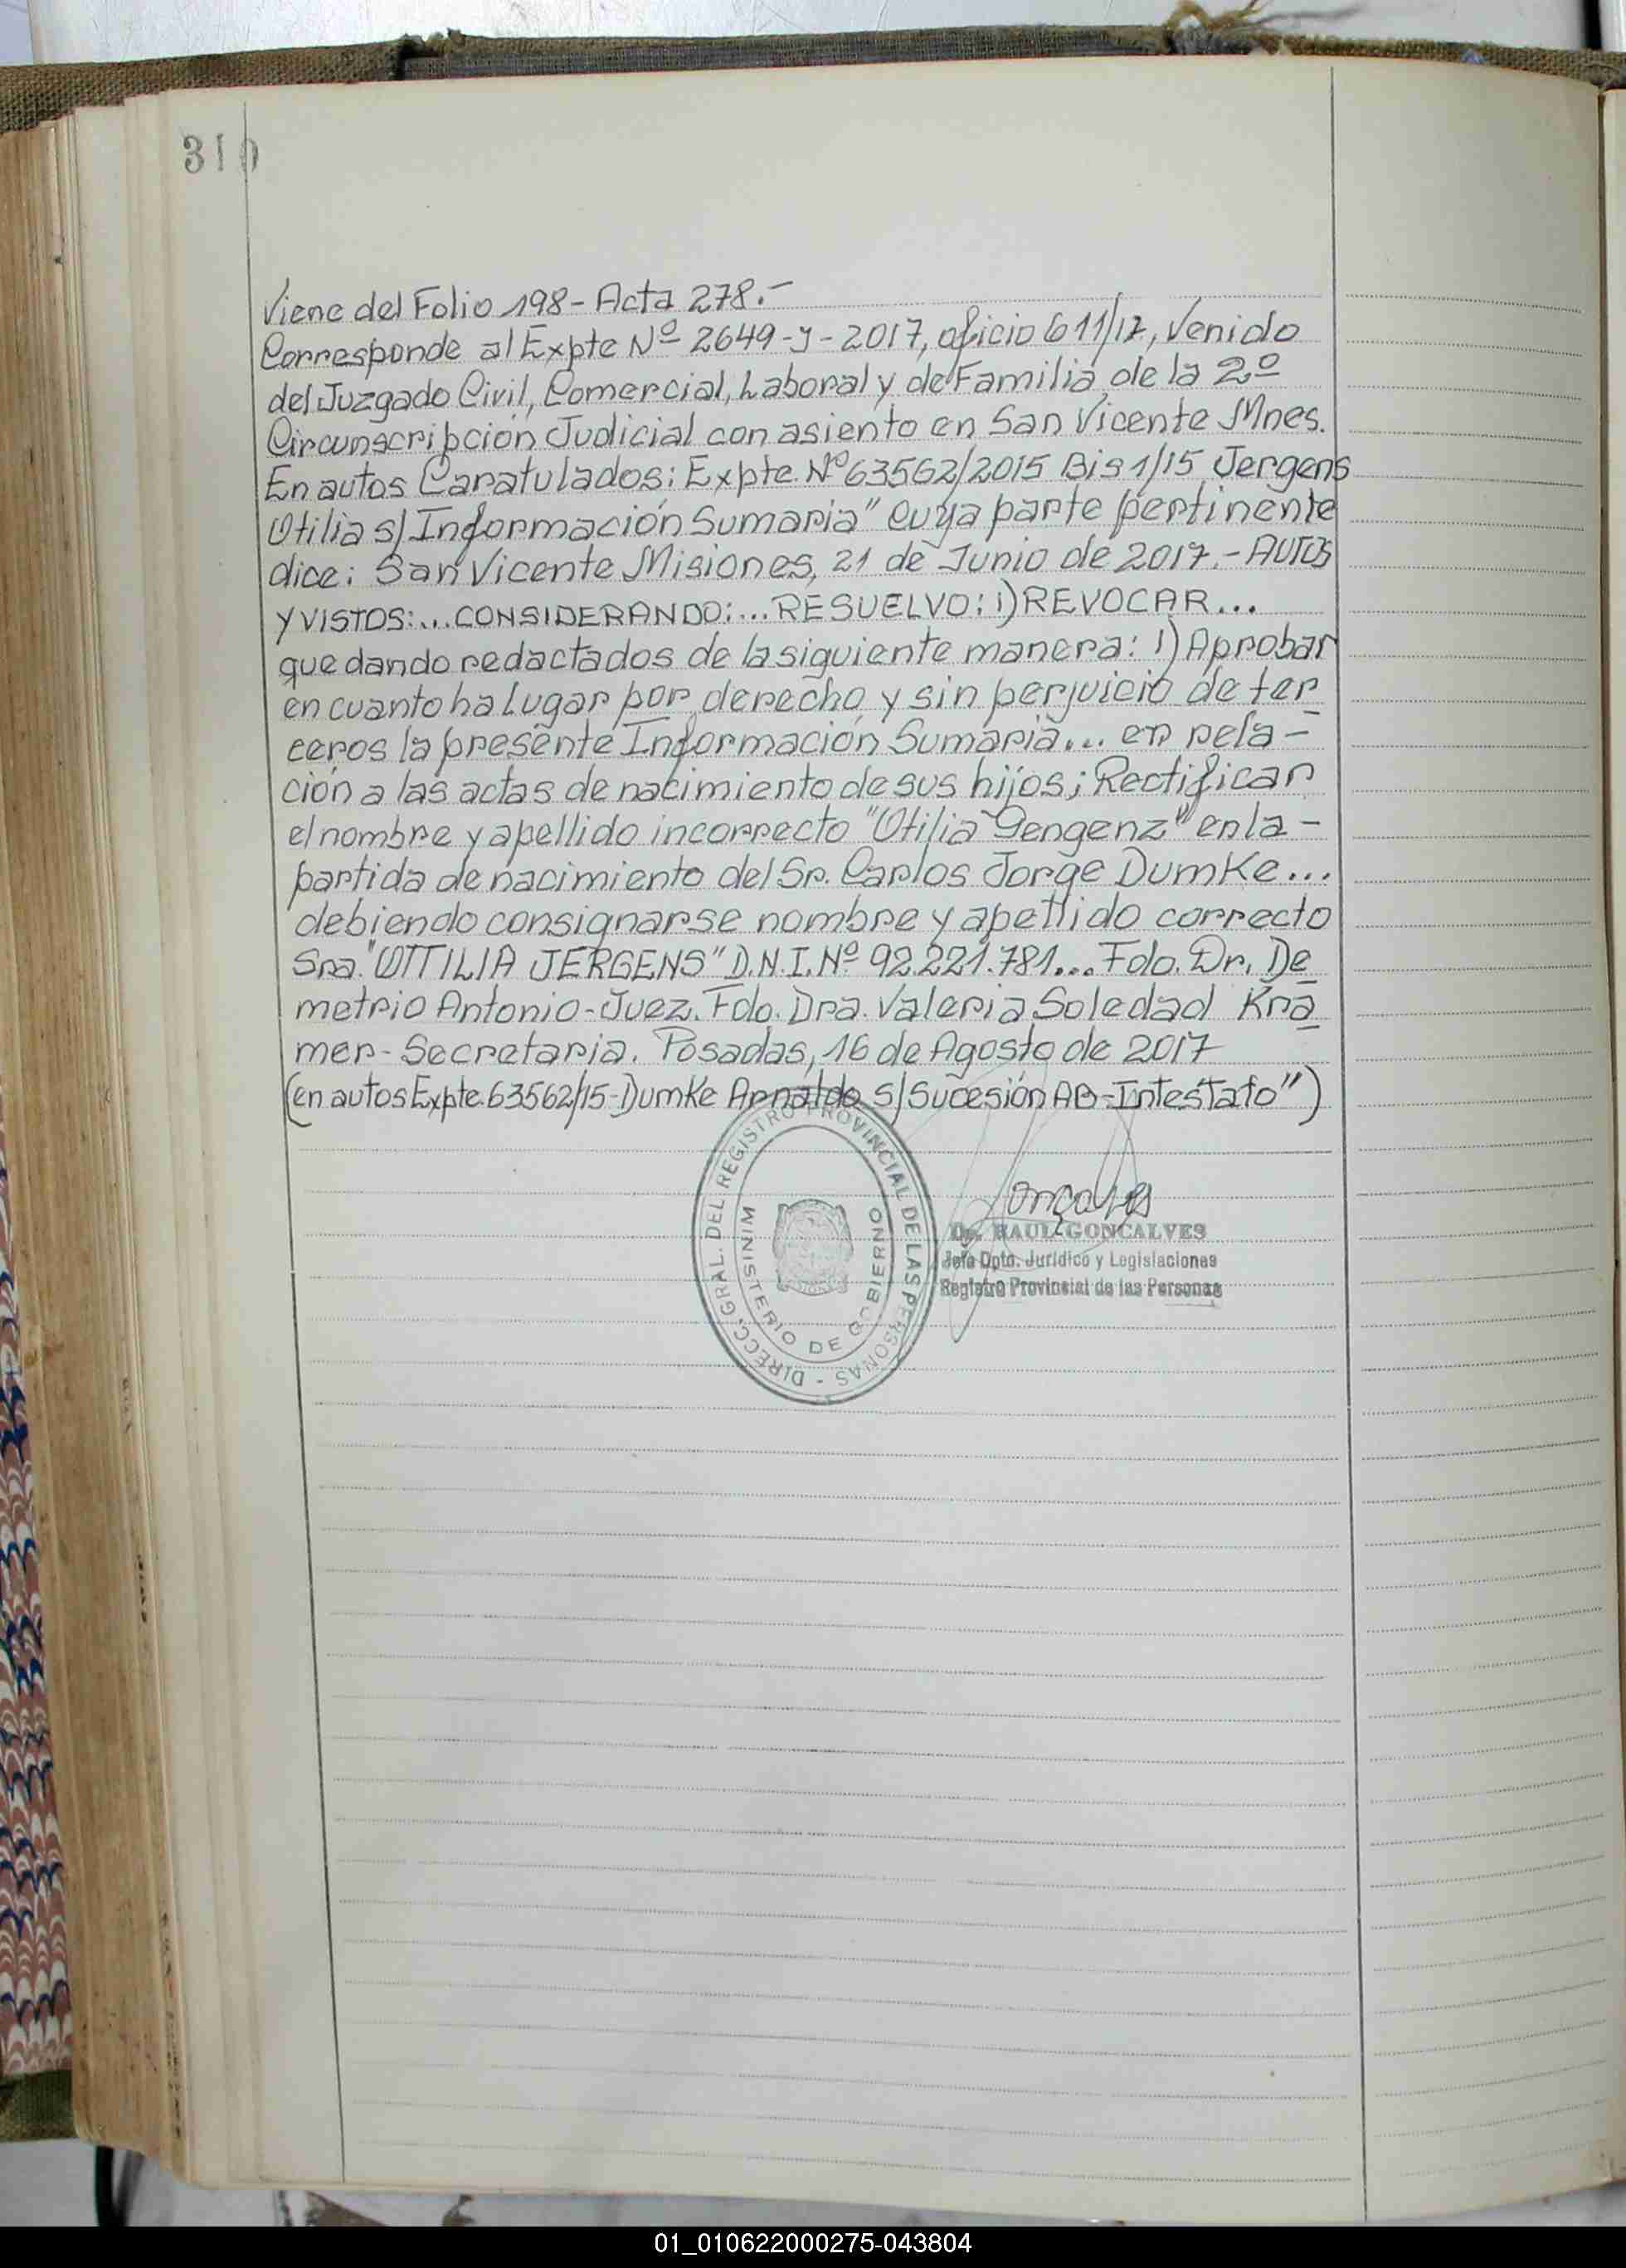 310
Viene del Folio 198 - Acta 278.-
Corresponde al Expte Nº 2649-J-2017, oficio 611/17, Venido
del Juzgado Civil, Comercial, Laboral y de Familia de la 2º
Circunscripción Judicial con asiento en San Vicente Mnes.
En autos Caratulados: Expte. Nº 63562/2015 Bis 1/15 Jergens
Otilia s/ Información Sumaria" cuya parte pertinente
dice: San Vicente Misiones, 21 de Junio de 2017.- AUTOS
Y VISTOS:... CONSIDERANDO:... RESUELVO: 1) REVOCAR...
quedando redactados de la siguiente manera: 1) Aprobar
en cuanto ha lugar por derecho y sin perjuicio de ter
ceros la presente Información Sumaria... en rela-
ción a las actas de nacimiento de sus hijos; Rectificar
el nombre y apellido incorrecto "Otilia Gengenz" en la -
partida de nacimiento del Sr. Carlos Jorge Dumke...
debiendo consignarse nombre y apellido correcto
Sra. "OTTILIA JERGENS" D.N.I. Nº 92.221.781... Fdo. Dr. De
metrio Antonio - Juez. Fdo. Dra. Valeria Soledad Kra
mer - Secretaria. Posadas, 16 de Agosto de 2017
(en autos Expte. 63562/15 - Dumke Arnaldo s/ Sucesión AB-Intestato")
DIRECC. GRAL. DEL REGISTRO PROVINCIAL DE LAS PERSONAS -
MINISTERIO DE GOBIERNO
Goncalves
Dr. RAUL GONCALVES
Jefe Dpto. Jurídico y Legislaciones
Registro Provincial de las Personas
01_010622000275-043804